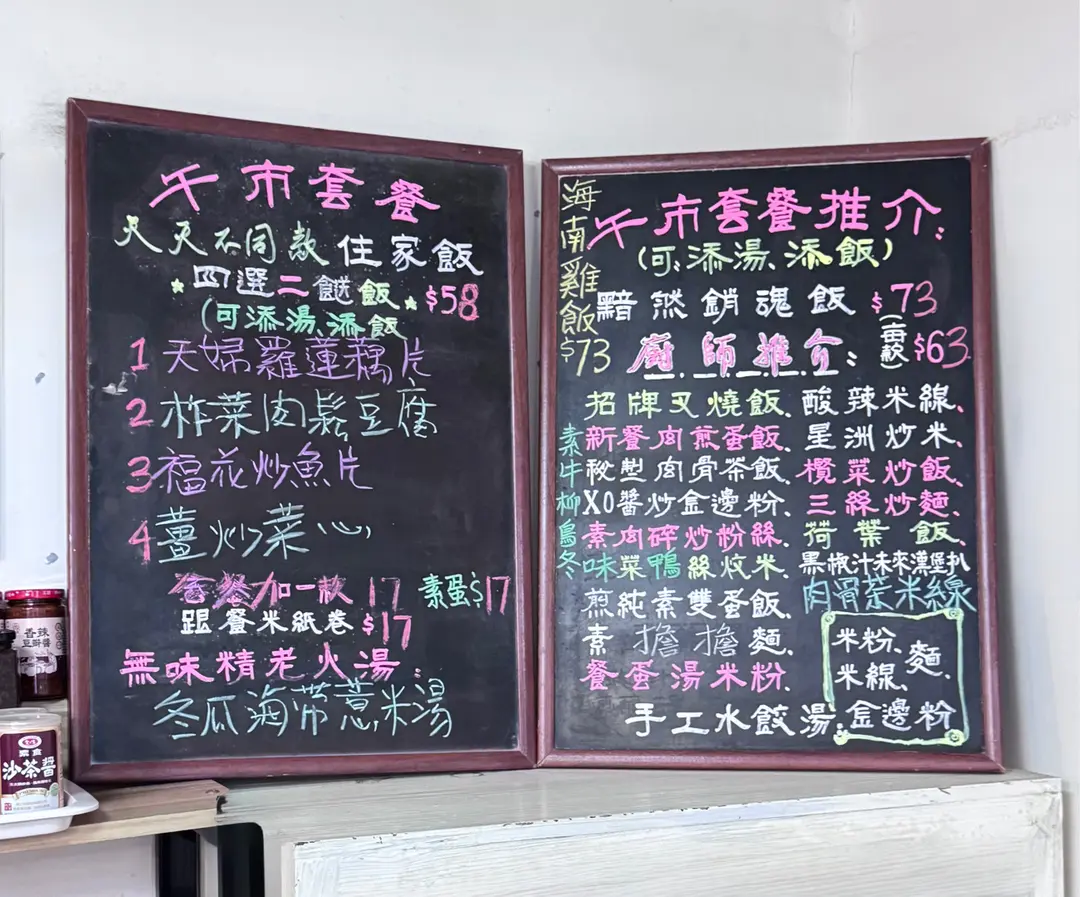 午市套餐
天天不同款住家飯
四選二餸飯 $58
(可添湯、添飯
1 天婦羅蓮藕片
2 榨菜肉鬆豆腐
3 福花炒魚片
4 薑炒菜心
套餐加一款 17 素蛋$17
跟餐米紙卷 $17
無味精老火湯:
冬瓜海带薏米湯
海南雞飯 $73
午市套餐推介:
(可添湯、添飯)
黯然銷魂飯 $73
廚師推介: (每款) $63
招牌叉燒飯、酸辣米線、
新餐肉煎蛋飯、星洲炒米、
秘製肉骨茶飯、欖菜炒飯、
XO醬炒金邊粉、三絲炒麵、
素肉碎炒粉絲、荷葉飯、
味菜鴨絲炆米、黑椒汁未來漢堡扒
素牛柳烏冬
煎純素雙蛋飯、肉骨茶米線
素擔擔麵、
餐蛋湯米粉、
手工水餃湯:
米粉、麵、
米線、
金邊粉
香辣
豆瓣醬
素食
沙茶醬